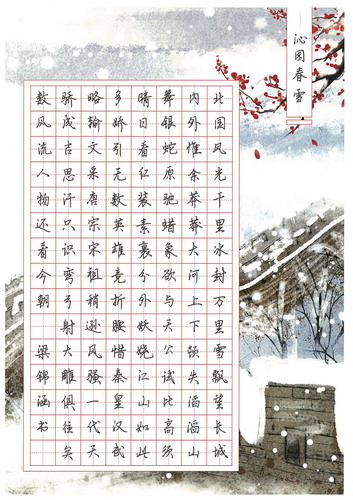 沁园春雪
北国风光千里冰封万里雪飘望长城
内外惟余莽莽大河上下顿失滔滔山
舞银蛇原驰蜡象欲与天公试比高须
晴日看红装素裹分外妖娆江山如此
多娇引无数英雄竞折腰惜秦皇汉武
略输文采唐宗宋祖稍逊风骚一代天
骄成吉思汗只识弯弓射大雕俱往矣
数风流人物还看今朝
梁锦涵书